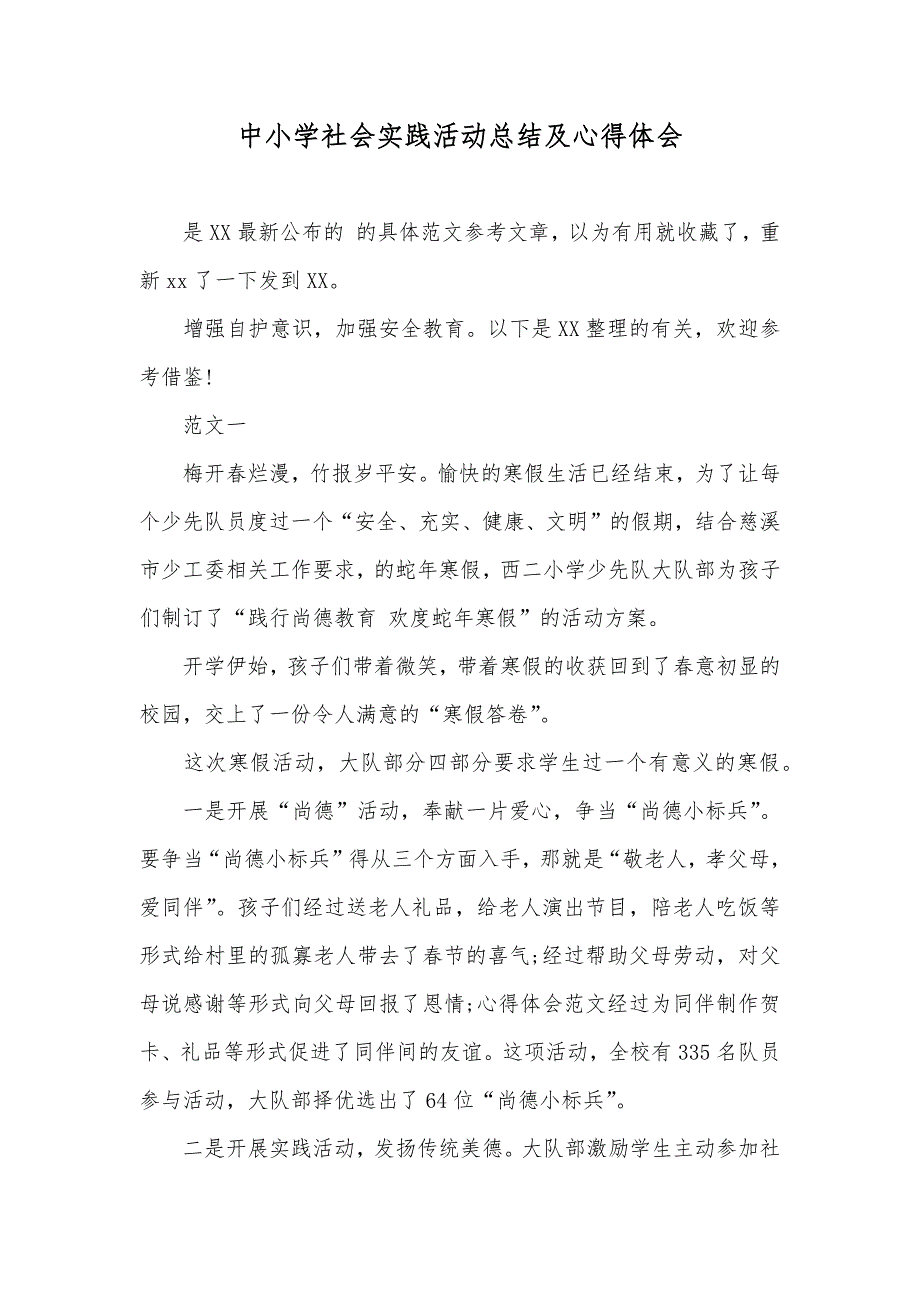 中小学社会实践活动总结及心得体会
是 XX 最新公布的 的具体范文参考文章，以为有用就收藏了，重
新 xx 了一下发到 XX。
增强自护意识，加强安全教育。以下是 XX 整理的有关，欢迎参
考借鉴!
范文一
梅开春烂漫，竹报岁平安。愉快的寒假生活已经结束，为了让每
个少先队员度过一个“安全、充实、健康、文明”的假期，结合慈溪
市少工委相关工作要求，的蛇年寒假，西二小学少先队大队部为孩子
们制订了“践行尚德教育 欢度蛇年寒假”的活动方案。
开学伊始，孩子们带着微笑，带着寒假的收获回到了春意初显的
校园，交上了一份令人满意的“寒假答卷”。
这次寒假活动，大队部分四部分要求学生过一个有意义的寒假。
一是开展“尚德”活动，奉献一片爱心，争当“尚德小标兵”。
要争当“尚德小标兵”得从三个方面入手，那就是“敬老人，孝父母，
爱同伴”。孩子们经过送老人礼品，给老人演出节目，陪老人吃饭等
形式给村里的孤寡老人带去了春节的喜气;经过帮助父母劳动，对父
母说感谢等形式向父母回报了恩情;心得体会范文经过为同伴制作贺
卡、礼品等形式促进了同伴间的友谊。这项活动，全校有 335 名队员
参与活动，大队部择优选出了 64 位“尚德小标兵”。
二是开展实践活动，发扬传统美德。大队部激励学生主动参加社